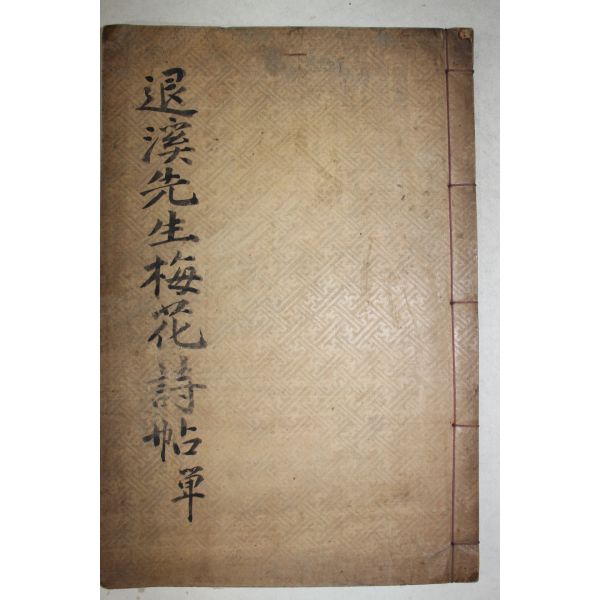 退溪先生梅花詩帖単